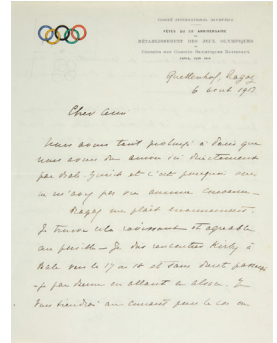 COMITÉ INTERNATIONAL OLYMPIQUE
FÊTES DU XXe ANNIVERSAIRE
DU
RÉTABLISSEMENT DES JEUX OLYMPIQUES
ET
CONGRÈS DES COMITÉS OLYMPIQUES NATIONAUX
PARIS, JUIN 1914
Quellenhof, Ragaz
6 août 191
Cher ami
Nous avons tant prolongé à Paris que
nous avons dû venir ici directement
par Bale. et c'est pourquoi vous
ne m'avez pas vu
Ragaz me plait énormément.
Je trouve cela ravissant et agréable
au possible — Je dois rencontrer
à Bale vers le 17 ou 18 et sans doute
je par en allant en Alsace. Je
vous tiendrai au courant pour le cas où